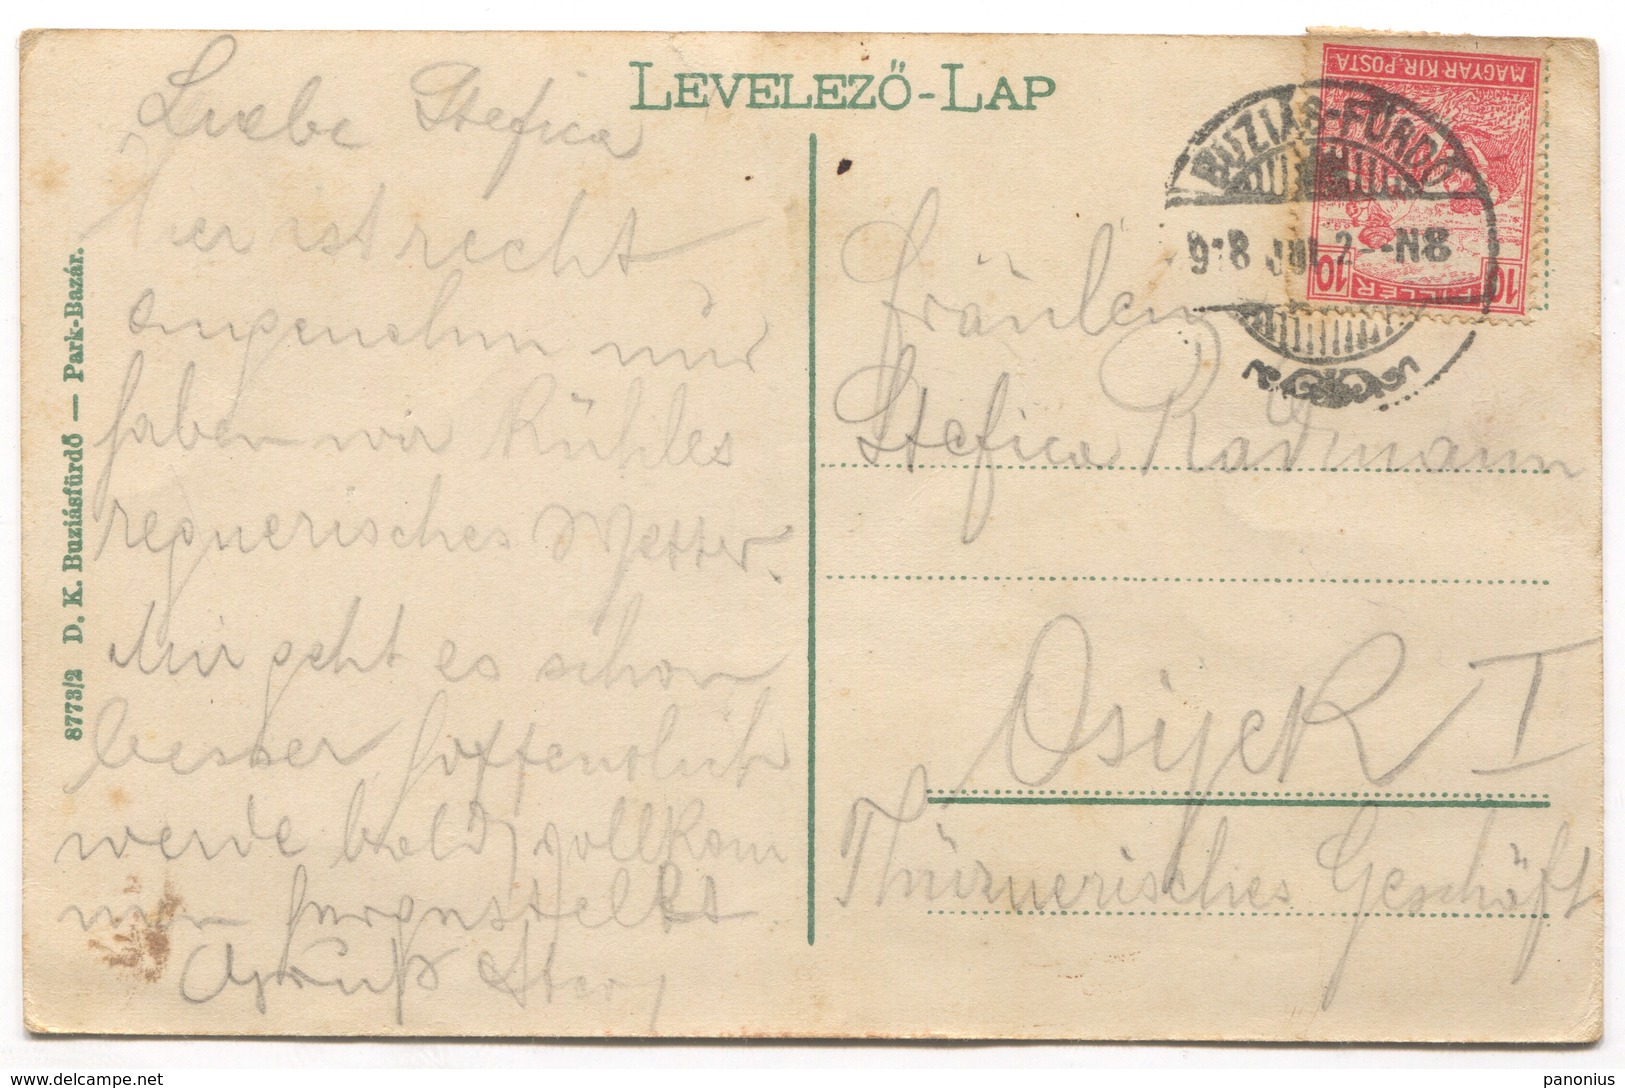 LEVELEZŐ-LAP
Liebe Stefica
er ist recht
angenehm nur
haben wir kühles
regnerisches Wetter.
Mir geht es schon
besser, hoffendlich
werde bald vollkom
men hergestellt
Gruß
8773/2 D. K. Buziásfürdő — Park-Bazár.
MAGYAR KIR. POSTA
10 FILLÉR 10
BUZIÁS-FÜRDŐ
918 JUL 2 - N8
Fräulen
Stefica Radmann
Osijek I
Thürnerisches Geschäft
delcampe.net
panonius